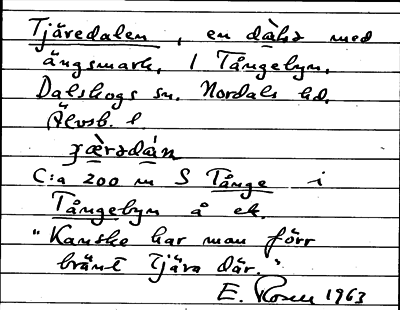 Tjäredalen, en dàlɜ med
ängsmark, I Tångebyn,
Dalskogs sn. Nordals hd.
Älvsb. l
ɟæ̀rɜdán
C:a 200 m S Tånge i
Tångebyn å ek.
"Kanske har man förr
bränt tjära där."
E. Rosen 1963